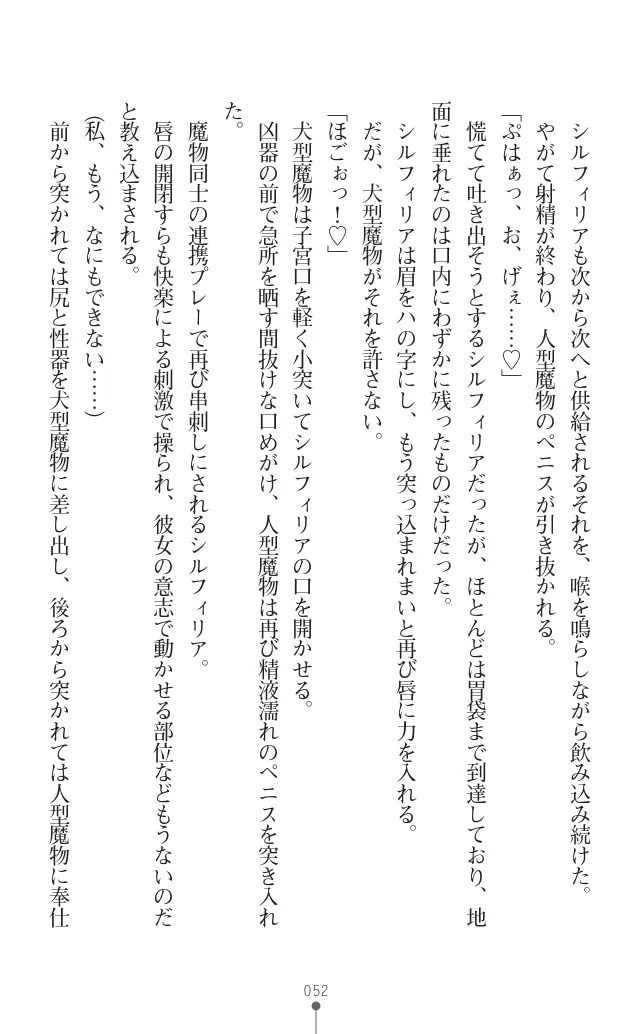 シルフィリアも次から次へと供給されるそれを、喉を鳴らしながら飲み込み続けた。
やがて射精が終わり、人型魔物のペニスが引き抜かれる。
「ぷはぁっ、お、げぇ……♡」
慌てて吐き出そうとするシルフィリアだったが、ほとんどは胃袋まで到達しており、地
面に垂れたのは口内にわずかに残ったものだけだった。
シルフィリアは眉をハの字にし、もう突っ込まれまいと再び唇に力を入れる。
だが、犬型魔物がそれを許さない。
「ほごぉっ！♡」
犬型魔物は子宮口を軽く小突いてシルフィリアの口を開かせる。
凶器の前で急所を晒す間抜けな口めがけ、人型魔物は再び精液濡れのペニスを突き入れ
た。
魔物同士の連携プレーで再び串刺しにされるシルフィリア。
唇の開閉すらも快楽による刺激で操られ、彼女の意志で動かせる部位などもうないのだ
と教え込まされる。
（私、もう、なにもできない……）
前から突かれては尻と性器を犬型魔物に差し出し、後ろから突かれては人型魔物に奉仕
052